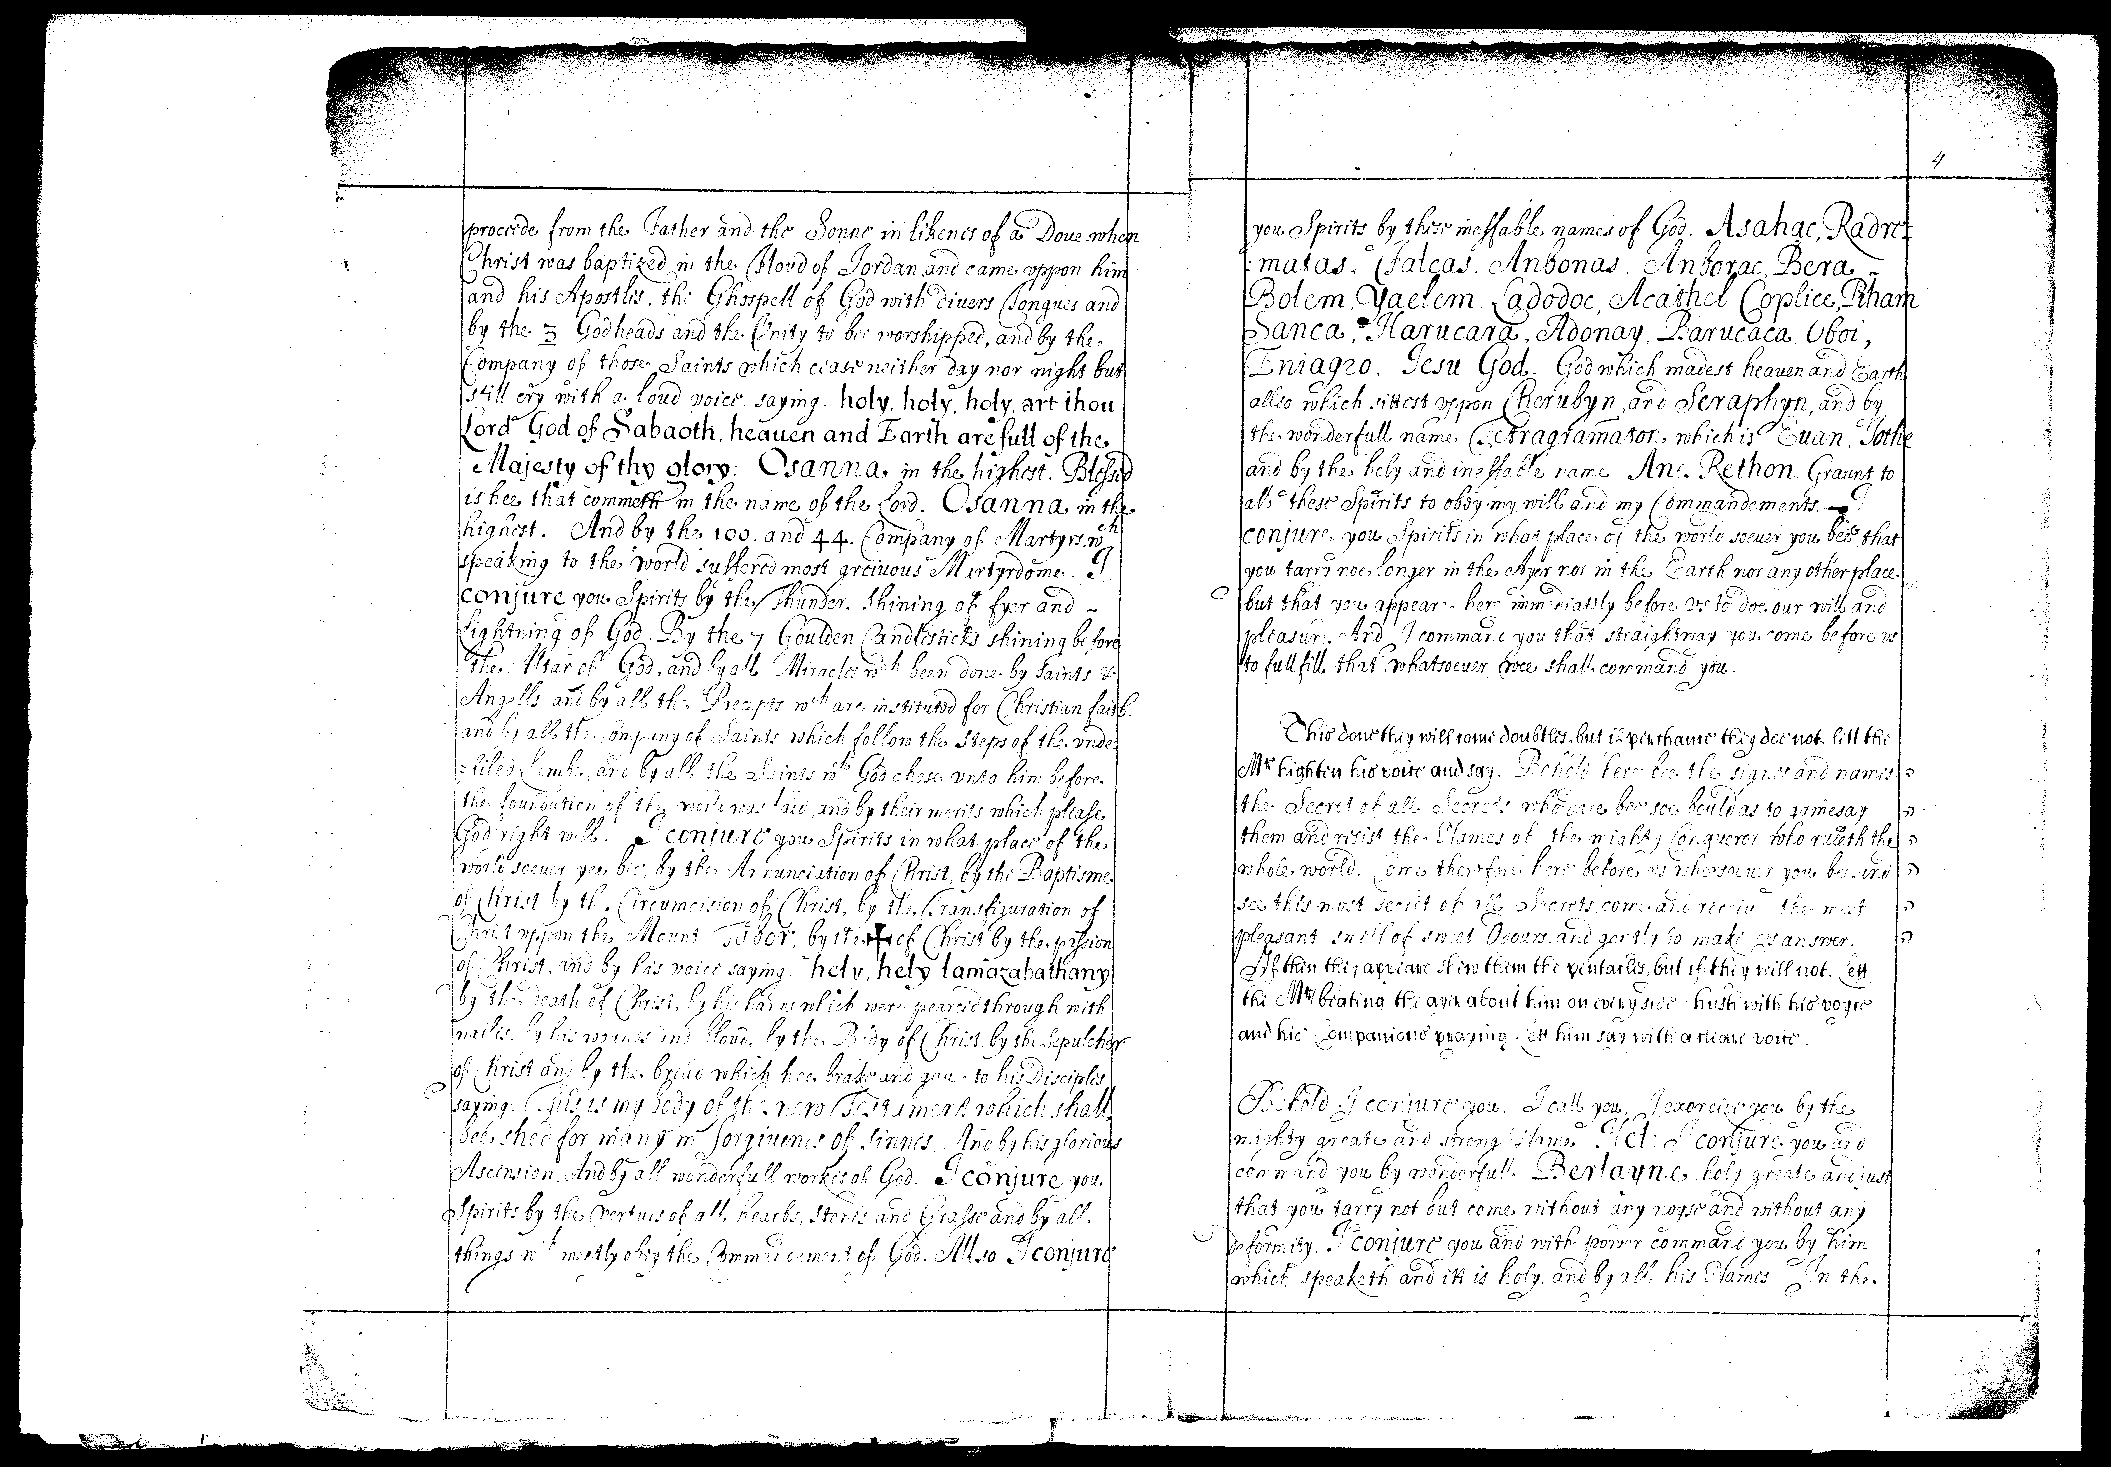 proceede from the Father and the Sonne in likenes of a Doue when
Christ was baptized in the floud of Jordan and came vppon him
and his Apostles, the Ghospell of God with divers Tongues and
by the 3 Godheads and the Vnity to bee worshipped, and by the
Company of those Saints which cease neither day nor night but
still cry with a loud voice saying holy, holy, holy, art thou
Lord God of Sabaoth, heauen and Earth are full of the
Majesty of thy glory: Osanna in the highest. Blessed
is hee that commeth in the name of the Lord. Osanna in the
highest. And by the 100. and 44. Company of Martyrs wch
speaking to the world suffered most greiuous Martyrdome. I
conjure you Spirits by the Thunder, shining of fyer and
lightning of God. By the 7 Goulden Candlesticks shining before
the Altar of God, and by all Miracles wch been done by Saints &
Angells and by all the Precepts wch are instituted for Christian faith
and by all the Company of Saints which follow the steps of the vnde
=filed Lambe, and by all the Saints wch God chose vnto him before
the foundation of the world was laid, and by their merits which please
God right well. I conjure you Spirits in what place of the
world soeuer you bee, by the Annunciation of Christ, by the Baptisme
of Christ by the Circumcision of Christ, by the Transfiguration of
Christ vppon the Mount Tabor, by the ✝ of Christ by the passion
of Christ, and by his voice saying hely, hely lamazabathany
by the death of Christ, by his hands which were pearced through with
nailes, by his wounds and bloud, by the Body of Christ by the Sepulcher
of Christ and by the bread which hee brake and gaue to his Disciples
saying. This is my body of the new Testament which shall
bee shed for many in forgiuenes of sinnes. And by his glorious
Ascension. And by all wonderfull workes of God. I conjure you
Spirits by the vertues of all hearbs, stones and Grasse and by all
things wch meetly obey the Commandement of God. Allso I conjure
4
you Spirits by these ineffable names of God. Asahac, Radre=
=matas, Falcas. Anbonas. Anborac, Bera
Bolem Yaelem Ladodoc, Acathel Coplice, Piham
Sanca, Harucara, Adonay, Barucaca Oboi,
Eniagzo. Jesu God. God which madest heauen and Earth
allso which sittest vppon Cherubyn, and Seraphyn, and by
the wonderfull name Tetragramaton which is Euan, Iothe
and by the holy and ineffable name Ane Rethon Graunt to
all these Spirits to obey my will and my Commandements. I
conjure you Spirits in what place of the world soeuer you bee, that
you tarry noe longer in the Ayer nor in the Earth nor any other place
but that you appeare here immediatly before vs to doe our will and
pleasure. And I command you that straightway you come before vs
to fullfill that whatsoeuer wee shall command you.
This done they will come doubtles, but if perchance they doe not lett the
Mr highten his voice and say. Behold here bee the signes and names
the Secret of all Secrets who can bee soe bould as to gainesay
them and resist the Names of the mighty Conqueror who ruleth the
whole world. Come therefore here before vs whersoeuer you be and
see this most secret of all Secrets, come and receiue the most
pleasant smell of sweet Odours and gently to make vs answer.
If then they appeare shew them the pentacles, but if they will not. lett
the Mr beating the ayer about him on every side with his voyce
and his Companions praying, lett him say with a cleare voice.
Behold I conjure you. I call you, I exorcise you by the
mighty greate and strong Name Hel: I conjure you and
command you by wonderfull Berlayne holy greate and just
that you tarry not but come without any noyse and without any
deformity. I conjure you and with power command you by him
which speaketh and itt is holy. and by all his Names In the